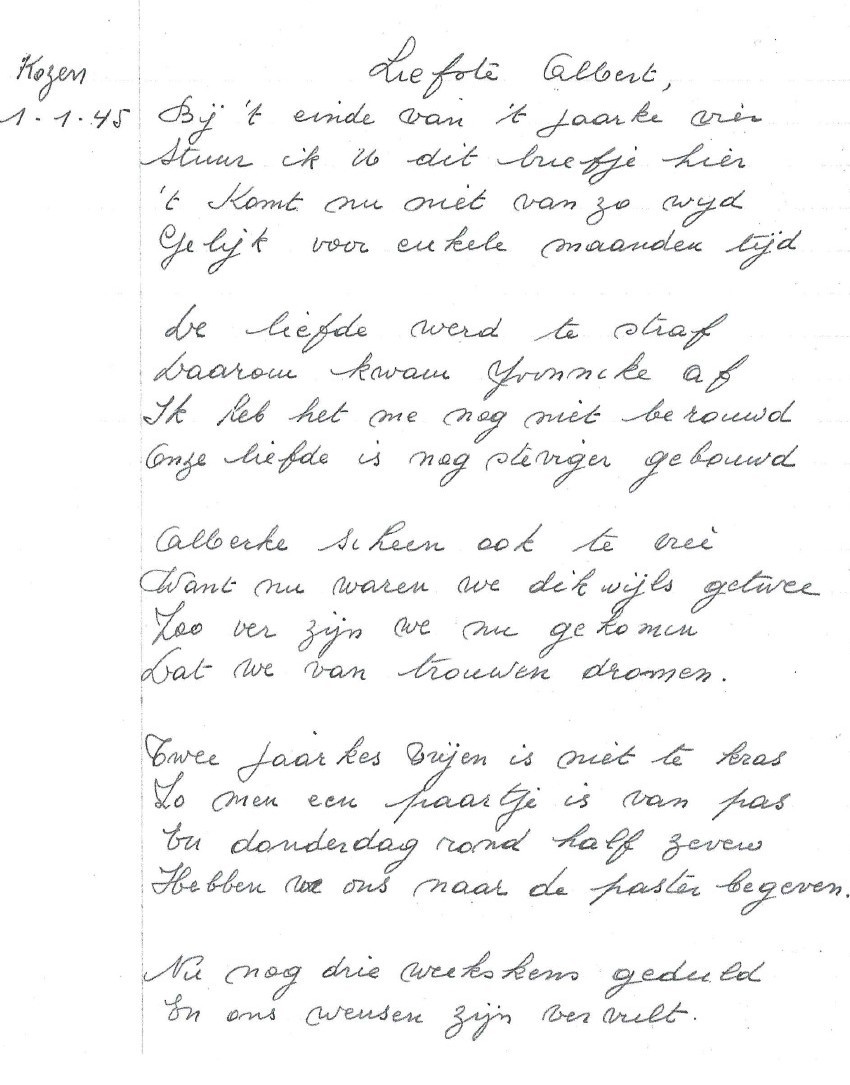 Kozen
1-1-45
Liefste Albert,
Bij 't einde van 't jaarke vier
Stuur ik U dit briefje hier
't Komt nu niet van zo wijd
Gelijk voor enkele maanden tijd
De liefde werd te straf
Daarom kwam Yvonneke af
Ik heb het me nog niet berouwd
Onze liefde is nog steviger gebouwd
Alberke scheen ook te vreê
Want nu waren we dikwijls getwee
Zoo ver zijn we nu gekomen
Dat we van trouwen dromen.
Twee jaarkes vrijen is niet te kras
Zo men een paartje is van pas
En donderdag rond half zeven
Hebben we ons naar de paster begeven.
Nu nog drie weekskens geduld
En ons wensen zijn vervult.